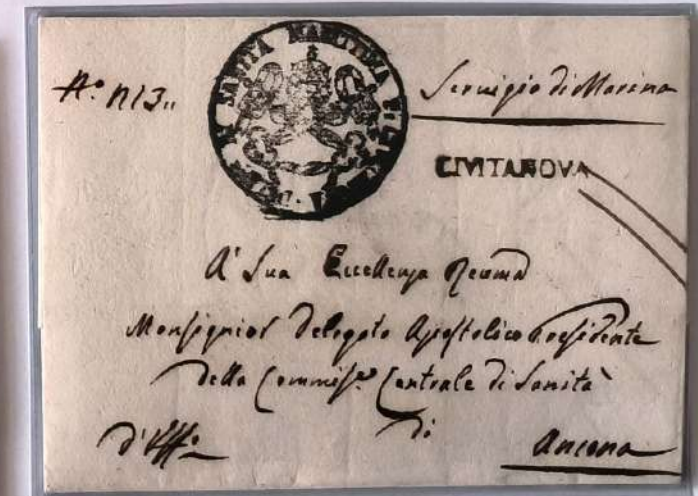 N.° 1113,,
SANITÀ MARITTIMA
Servigio di Marina
CIVITANOVA
A' Sua Eccellenza Reve͞ma
Monsignior Delegato Apostolico Presidente
della Commiss.e Centrale di Sanità
d'Uff.o di Ancona